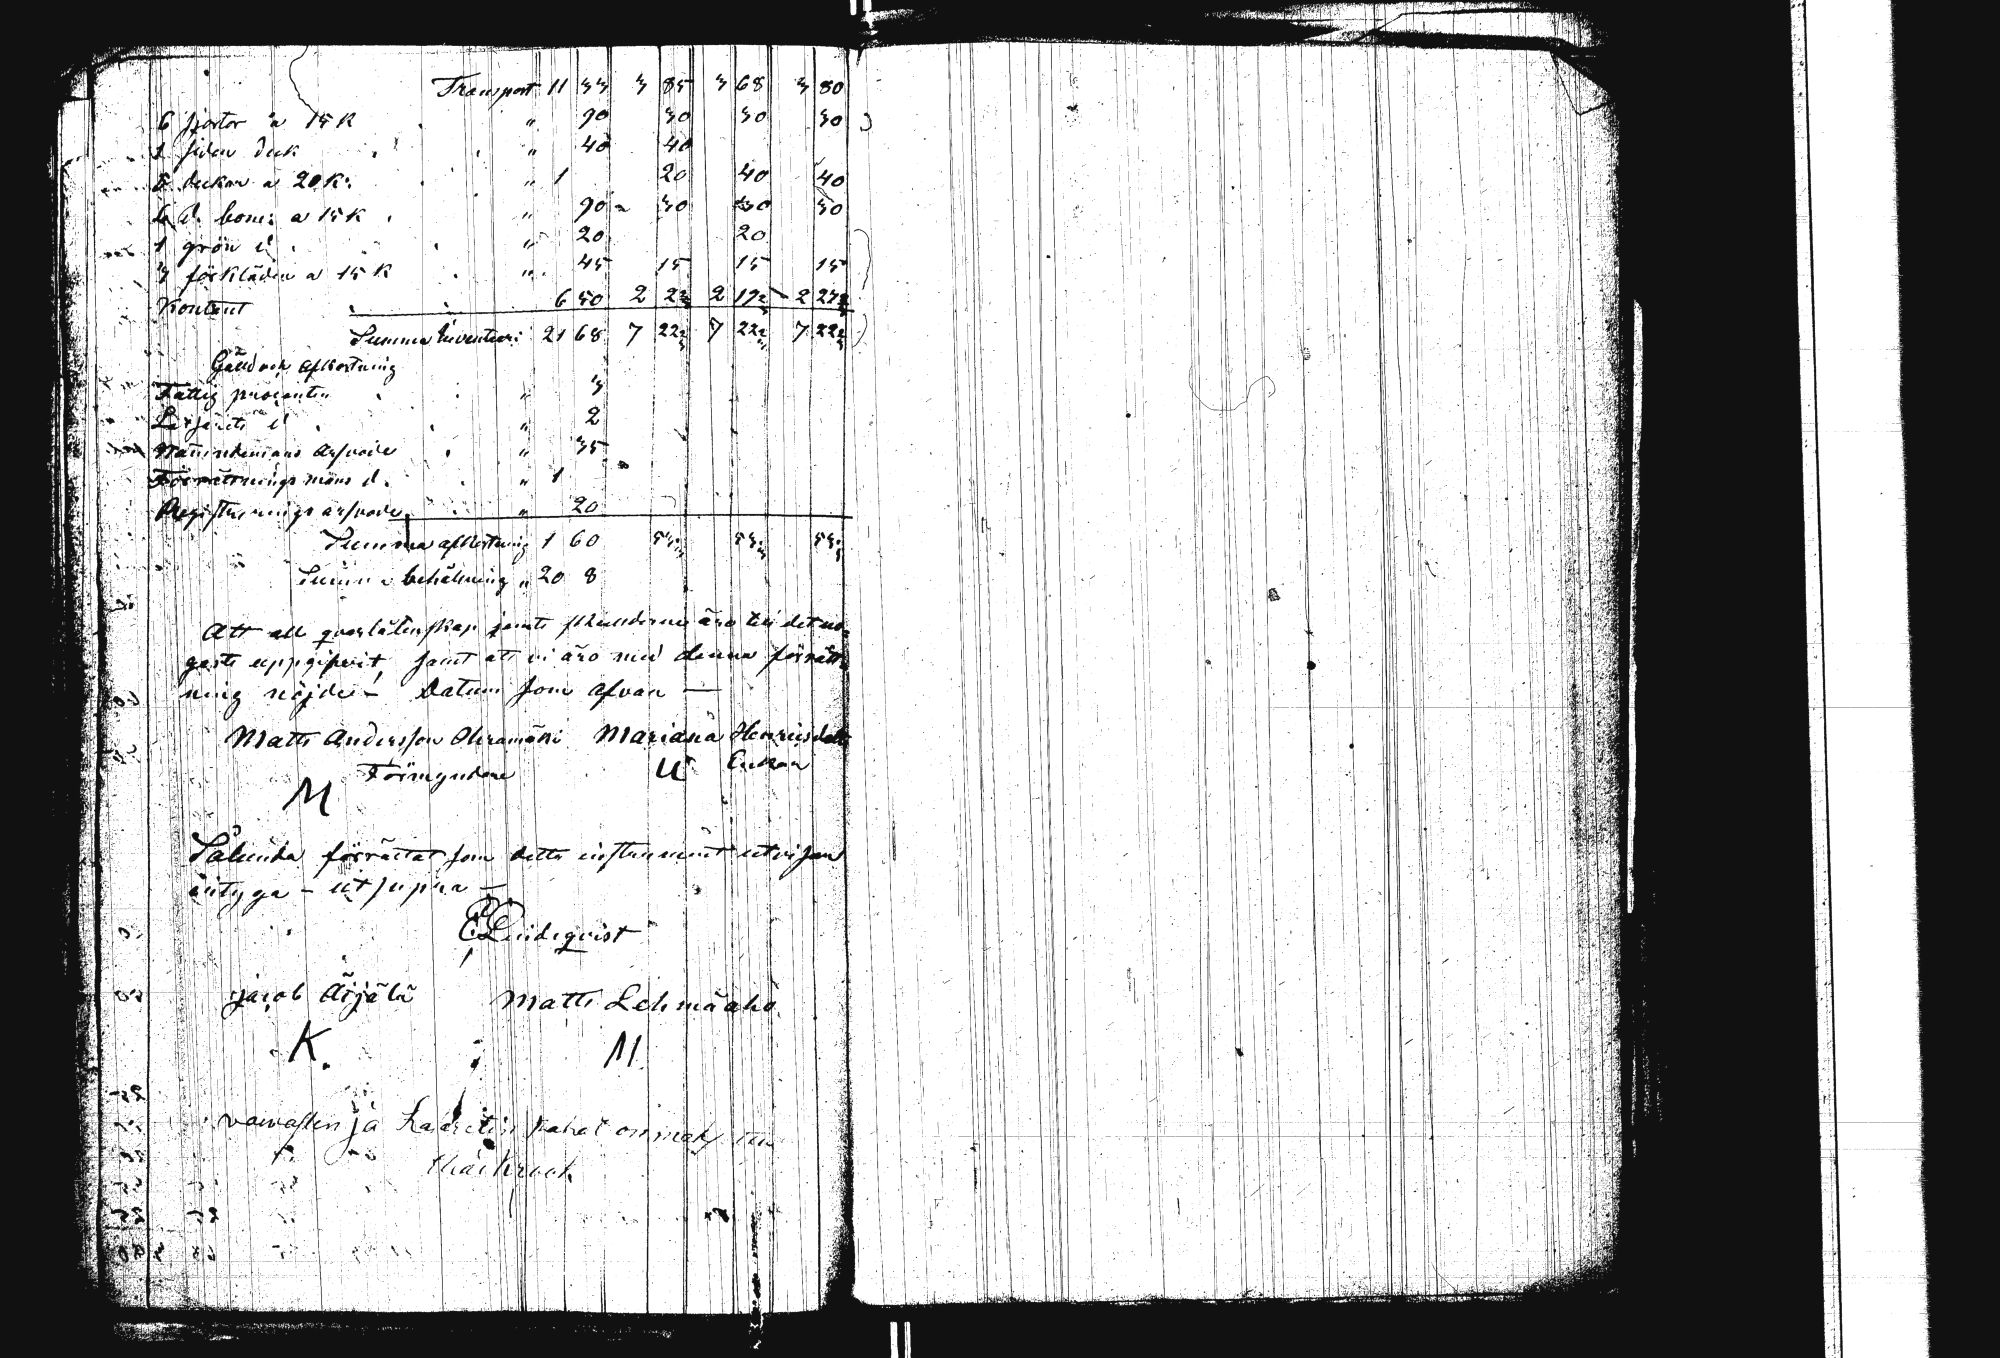 Transport 11 33 3 85 3 68 3 80
6 sjortor a 15 K " 90 30 30 30
1 siden duk " 40 40
5 dukar a 20 K: " 1 20 40 40
6 d. bom: a 15 K " 90 30 30 30
1 grön d " 20 20
3 förkläden a 15 K " 45 15 15 15
Kontant 6 50 2 2 2 17 2 27
Summa Inventari: 21 68 7 22 7 22 7 22
Gäld och afkortning
Fattig procenten " 3
Lazaretts d " 2
Nämndemans arfvode " 35
Förrättnings mäns d. " 1
Registrerings arfvode " 20
Summa afkortning 1 60 53 53 53
Summa behållning " 20 8
Att all qvarlåtenskap jemte skulderne äro till det no-
gaste uppgifvit, samt att vi äro med denna förrätt-
ning nöjde – Datum som ofvan —
Matts Andersson Mariana Henricsdotter
Förmyndare Enkan
M
Sålunda förrättat som detta instrument utvisar
intyga – ut supra —
Lindeqvist
Jacob Äijälä Matts Lehmäaho
K. M